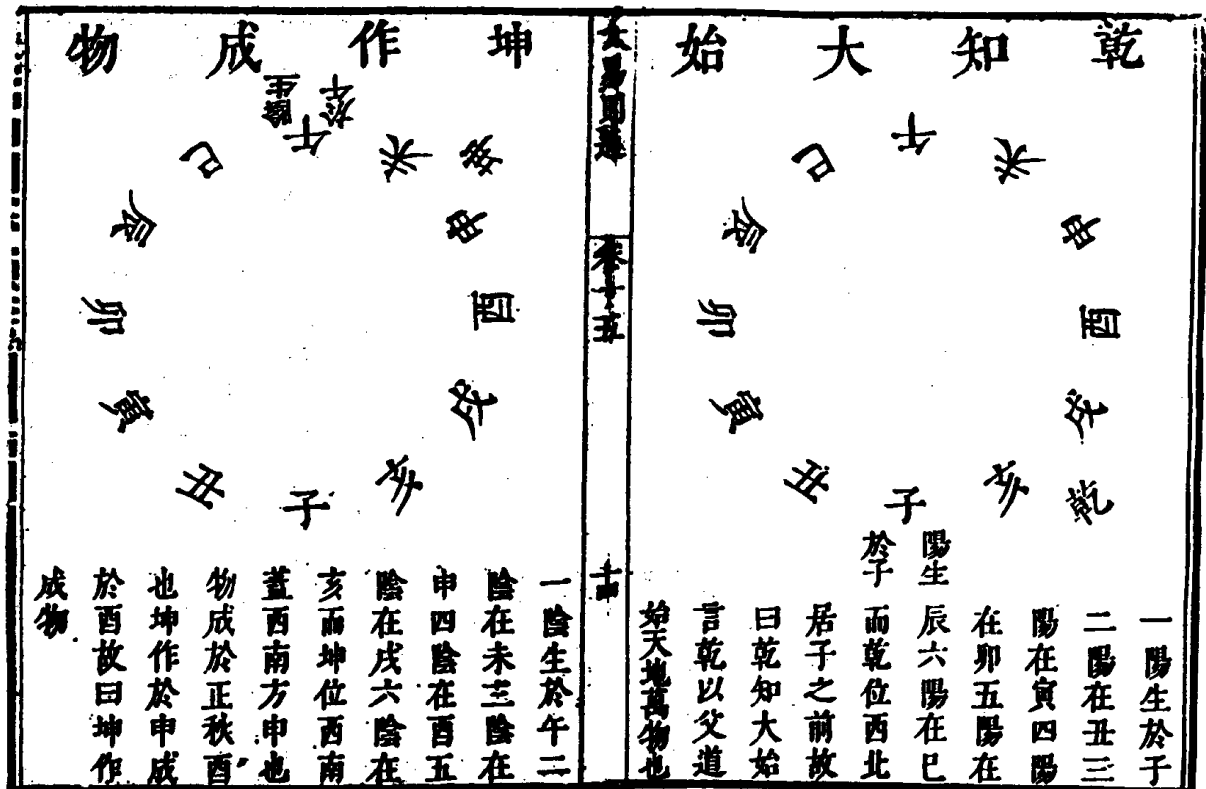 乾知大始
午
未
申
酉
戌
乾
亥
子
丑
寅
卯
辰
巳
陽生
於子
一陽生於子
二陽在丑三
陽在寅四陽
在卯五陽在
辰六陽在巳
而乾位西北
居子之前故
曰乾知大始
言乾以父道
始天地萬物也
大易則通
卷十五
十四
坤作成物
陰生
於午
午
未
申
酉
戌
亥
子
丑
寅
卯
辰
巳
一陰生於午二
陰在未三陰在
申四陰在酉五
陰在戌六陰在
亥而坤位西南
蓋西南方申也
物成於正秋酉
也坤作於申成
於酉故曰坤作
成物